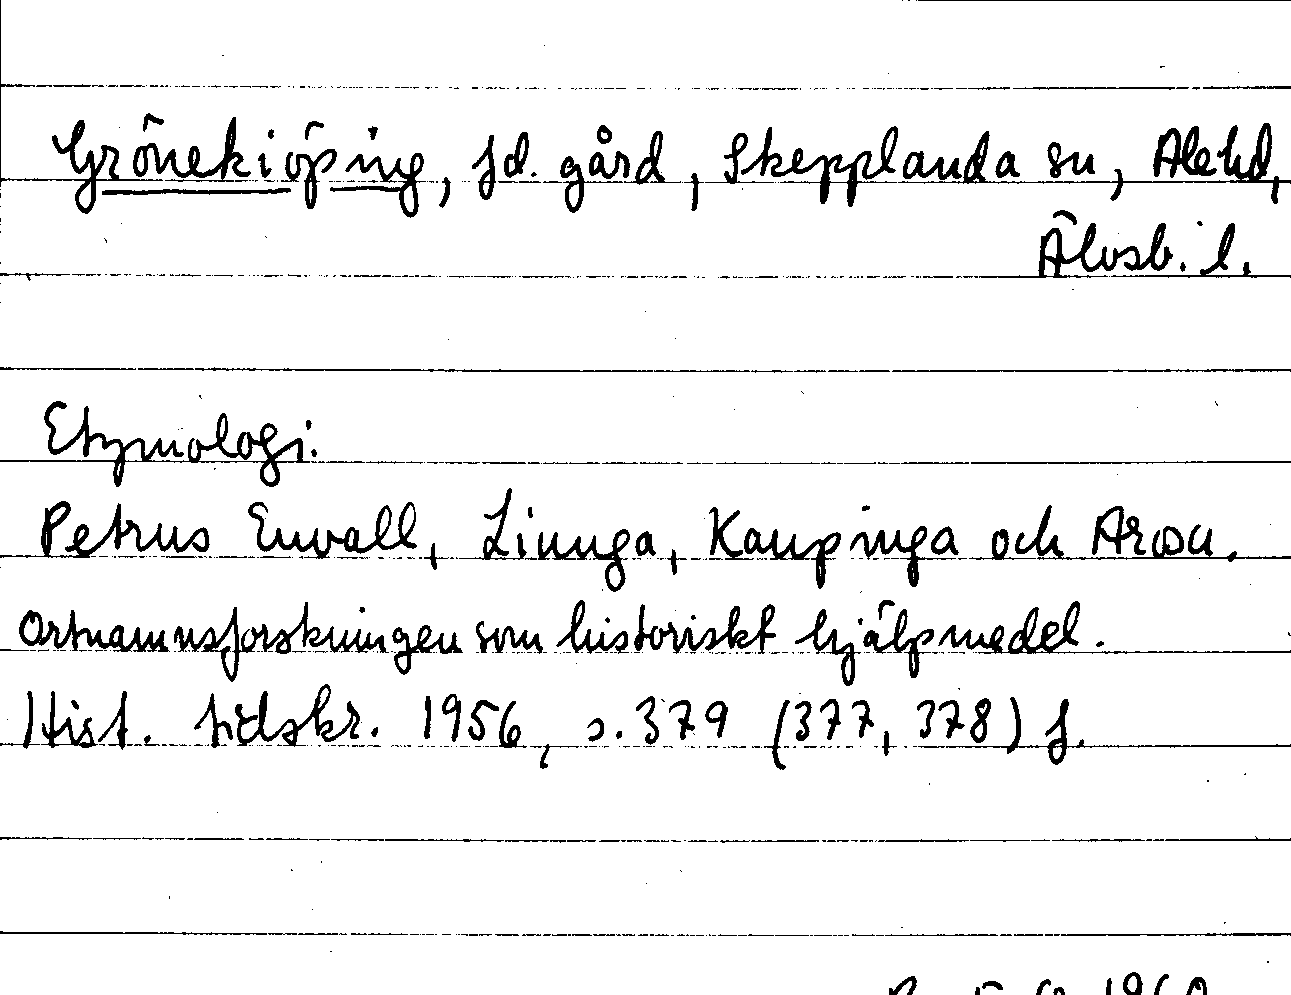 Grönekiöping, fd. gård, Skepplanda sn, Alehd,
Älvsb. l.
Etymologi.
Petrus Envall, Liunga, Kaupinga och Arosa.
Ortnamnsforskningen som historiskt hjälpmedel.
Hist. tidskr. 1956, s. 379 (377, 378) f.
1960